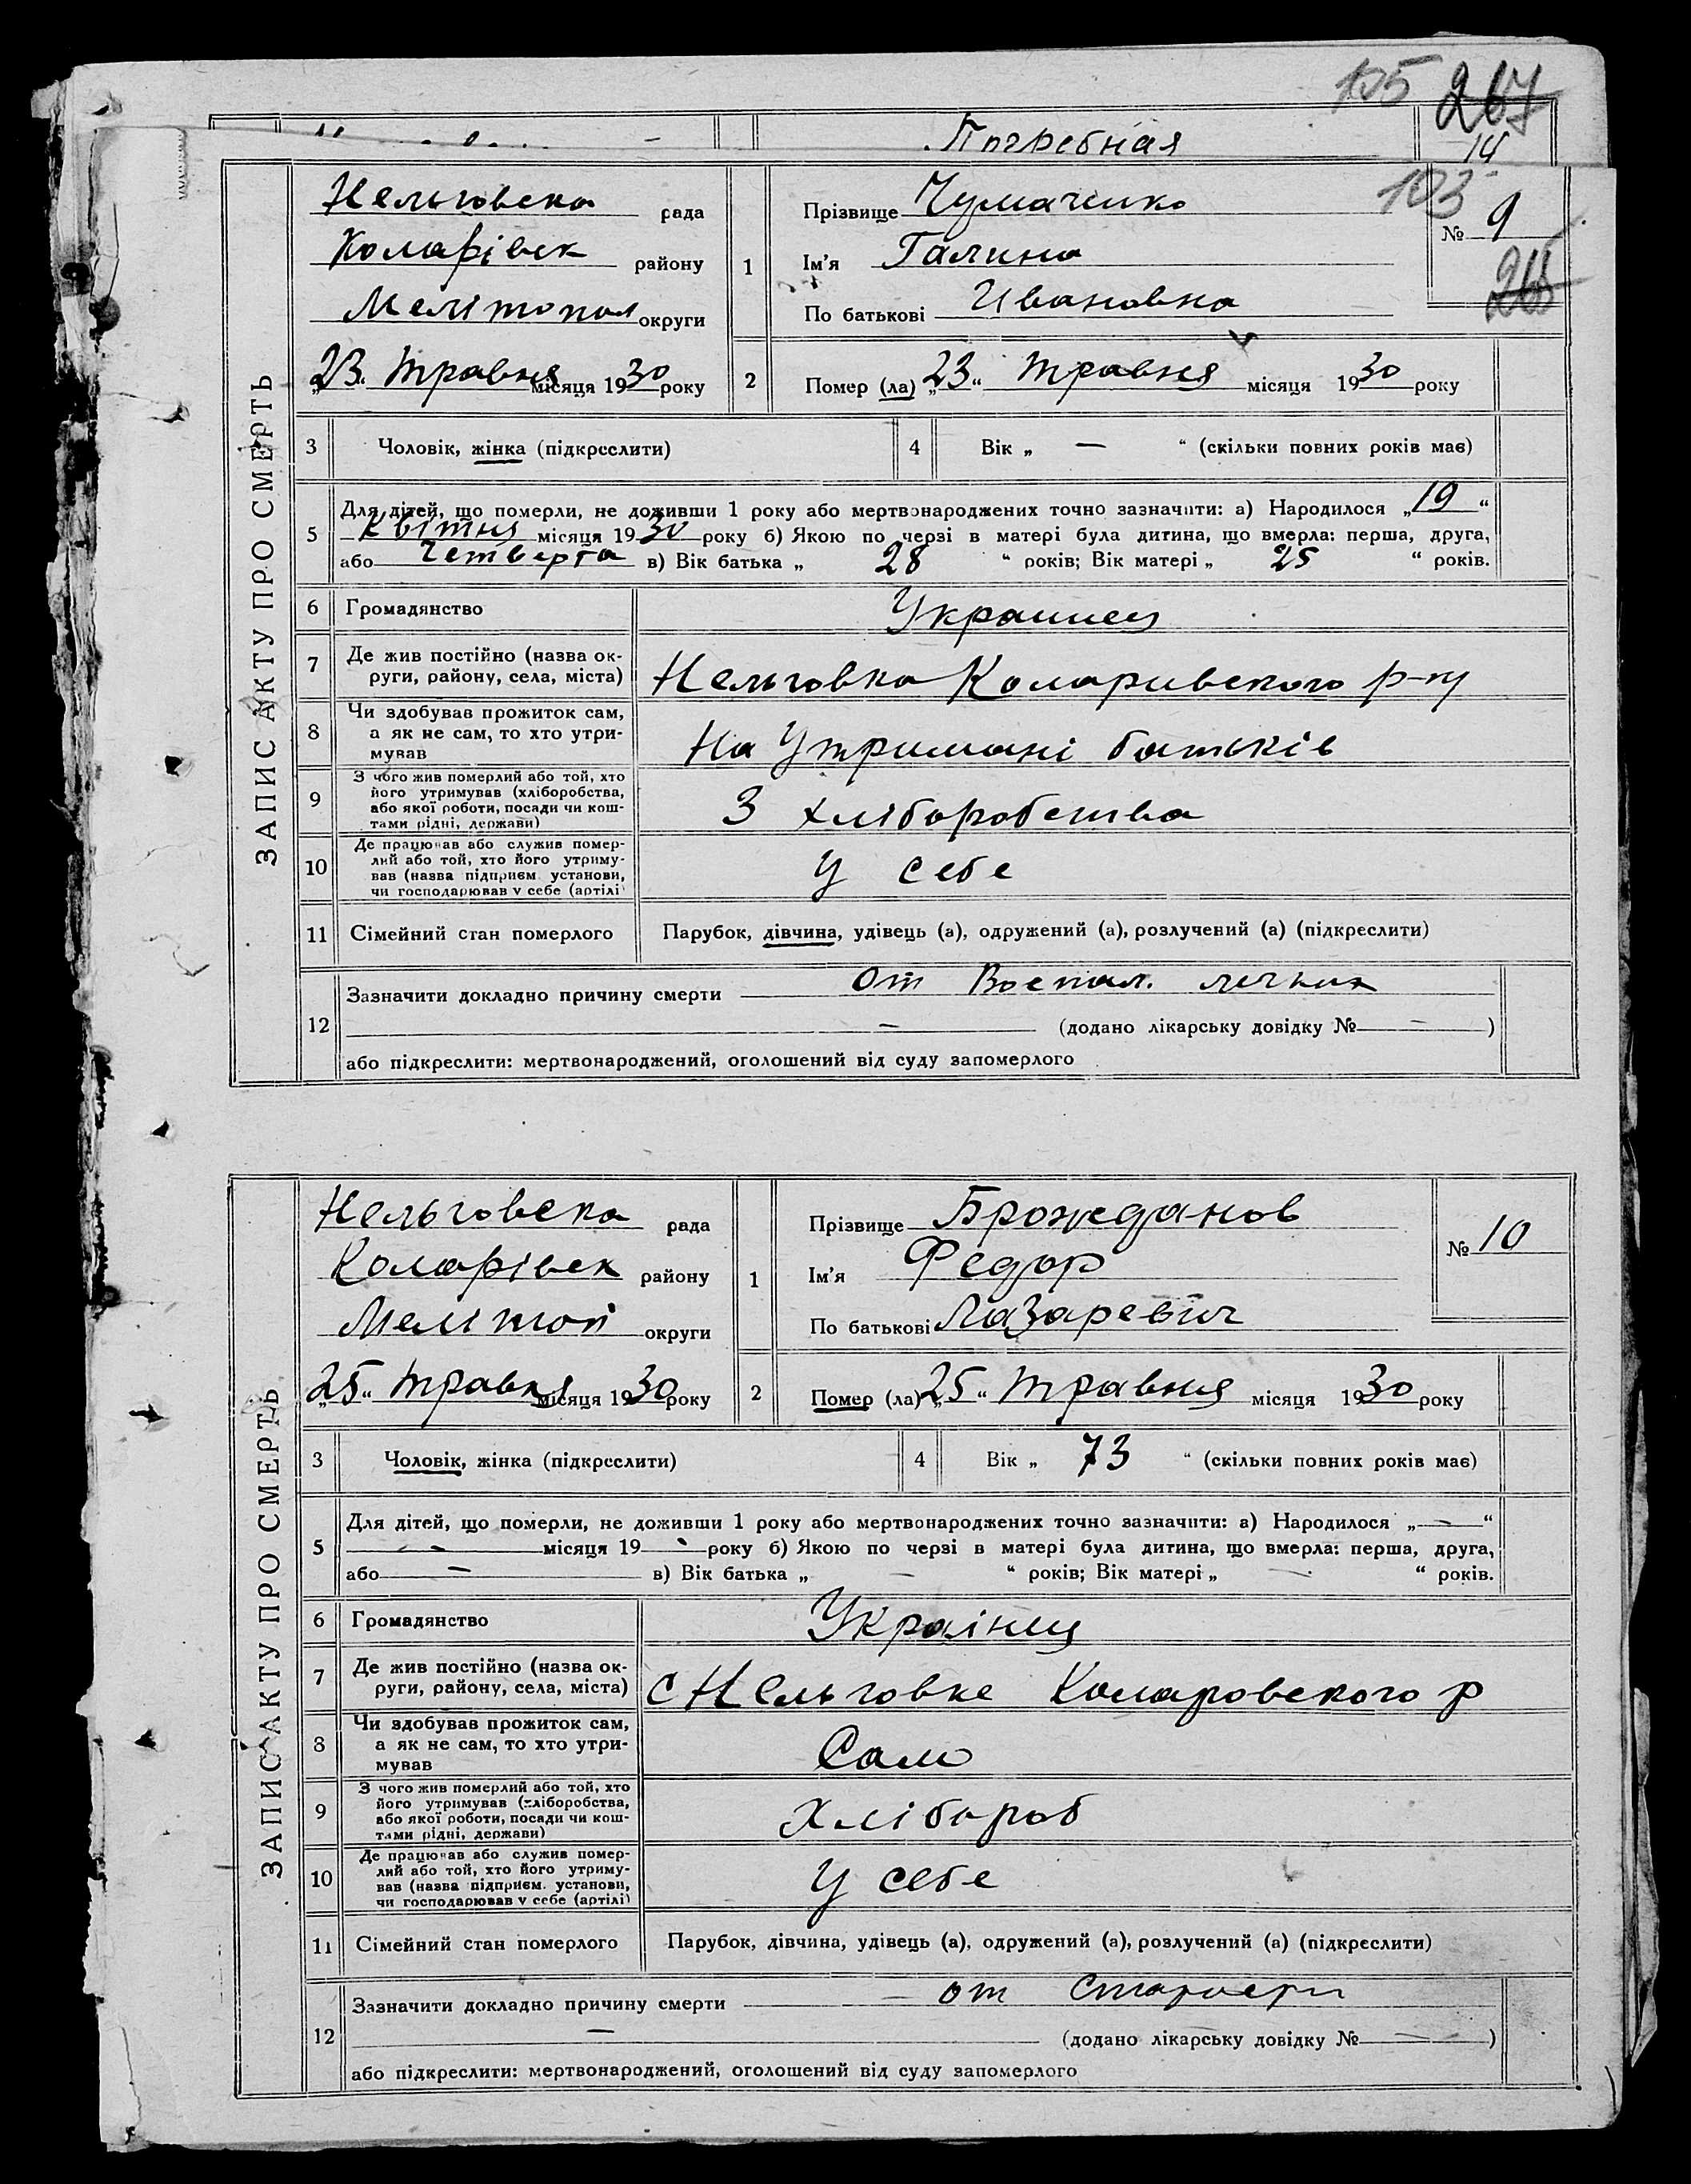 105 267
Погребная 14
103
Нельговска рада
Коларівск району
Мелітопол округи
„23“ травня місяця 1930 року
1
Прізвище Чумаченко
Ім'я Галина
По батькові Ивановна
№ 9
2
Помер (ла) „23“ травня місяця 1930 року
ЗАПИС АКТУ ПРО СМЕРТЬ
3 Чоловік, жінка (підкреслити) 4 Вік „ — “ (скільки повних років має)
5 Для дітей, що померли, не доживши 1 року або мертвонароджених точно зазначити: а) Народилося „19“
квітня місяця 1930 року б) Якою по черзі в матері була дитина, що вмерла: перша, друга,
або четверта в) Вік батька „ 28 “ років; Вік матері „ 25 “ років.
6 Громадянство Украинец
7 Де жив постійно (назва ок-
руги, району, села, міста) Нельговка Коларивского р-ну
8 Чи здобував прожиток сам,
а як не сам, то хто утри-
мував На утримані батьків
9 З чого жив померлий або той, хто
його утримував (хліборобства,
або якої роботи, посади чи кош-
тами рідні, держави) З хліборобства
10 Де працював або служив помер-
лий або той, хто його утриму-
вав (назва підприєм. установи,
чи господарював у себе (артілі) У себе
11 Сімейний стан померлого Парубок, дівчина, удівець (а), одружений (а), розлучений (а) (підкреслити)
12 Зазначити докладно причину смерти от Воспал. легких
— (додано лікарську довідку № — )
або підкреслити: мертвонароджений, оголошений від суду запомерлого
Нельговска рада
Коларівск району
Меліттоп округи
„25“ травня місяця 1930 року
1
Прізвище Брожданов
Ім'я Федор
По батькові Лазаревич
№ 10
2
Помер (ла) „25“ травня місяця 1930 року
ЗАПИС АКТУ ПРО СМЕРТЬ
3 Чоловік, жінка (підкреслити) 4 Вік „ 73 “ (скільки повних років має)
5 Для дітей, що померли, не доживши 1 року або мертвонароджених точно зазначити: а) Народилося „—“
— місяця 19 - року б) Якою по черзі в матері була дитина, що вмерла: перша, друга,
або — в) Вік батька „ — “ років; Вік матері „ — “ років.
6 Громадянство Українец
7 Де жив постійно (назва ок-
руги, району, села, міста) с Нельговке Коларовского р
8 Чи здобував прожиток сам,
а як не сам, то хто утри-
мував Сам
9 З чого жив померлий або той, хто
його утримував (хліборобства,
або якої роботи, посади чи кош-
тами рідні, держави) Хлібороб
10 Де працював або служив помер-
лий або той, хто його утриму-
вав (назва підприєм. установи,
чи господарював у себе (артілі) У себе
11 Сімейний стан померлого Парубок, дівчина, удівець (а), одружений (а), розлучений (а) (підкреслити)
12 Зазначити докладно причину смерти — от Старости
— (додано лікарську довідку № — )
або підкреслити: мертвонароджений, оголошений від суду запомерлого